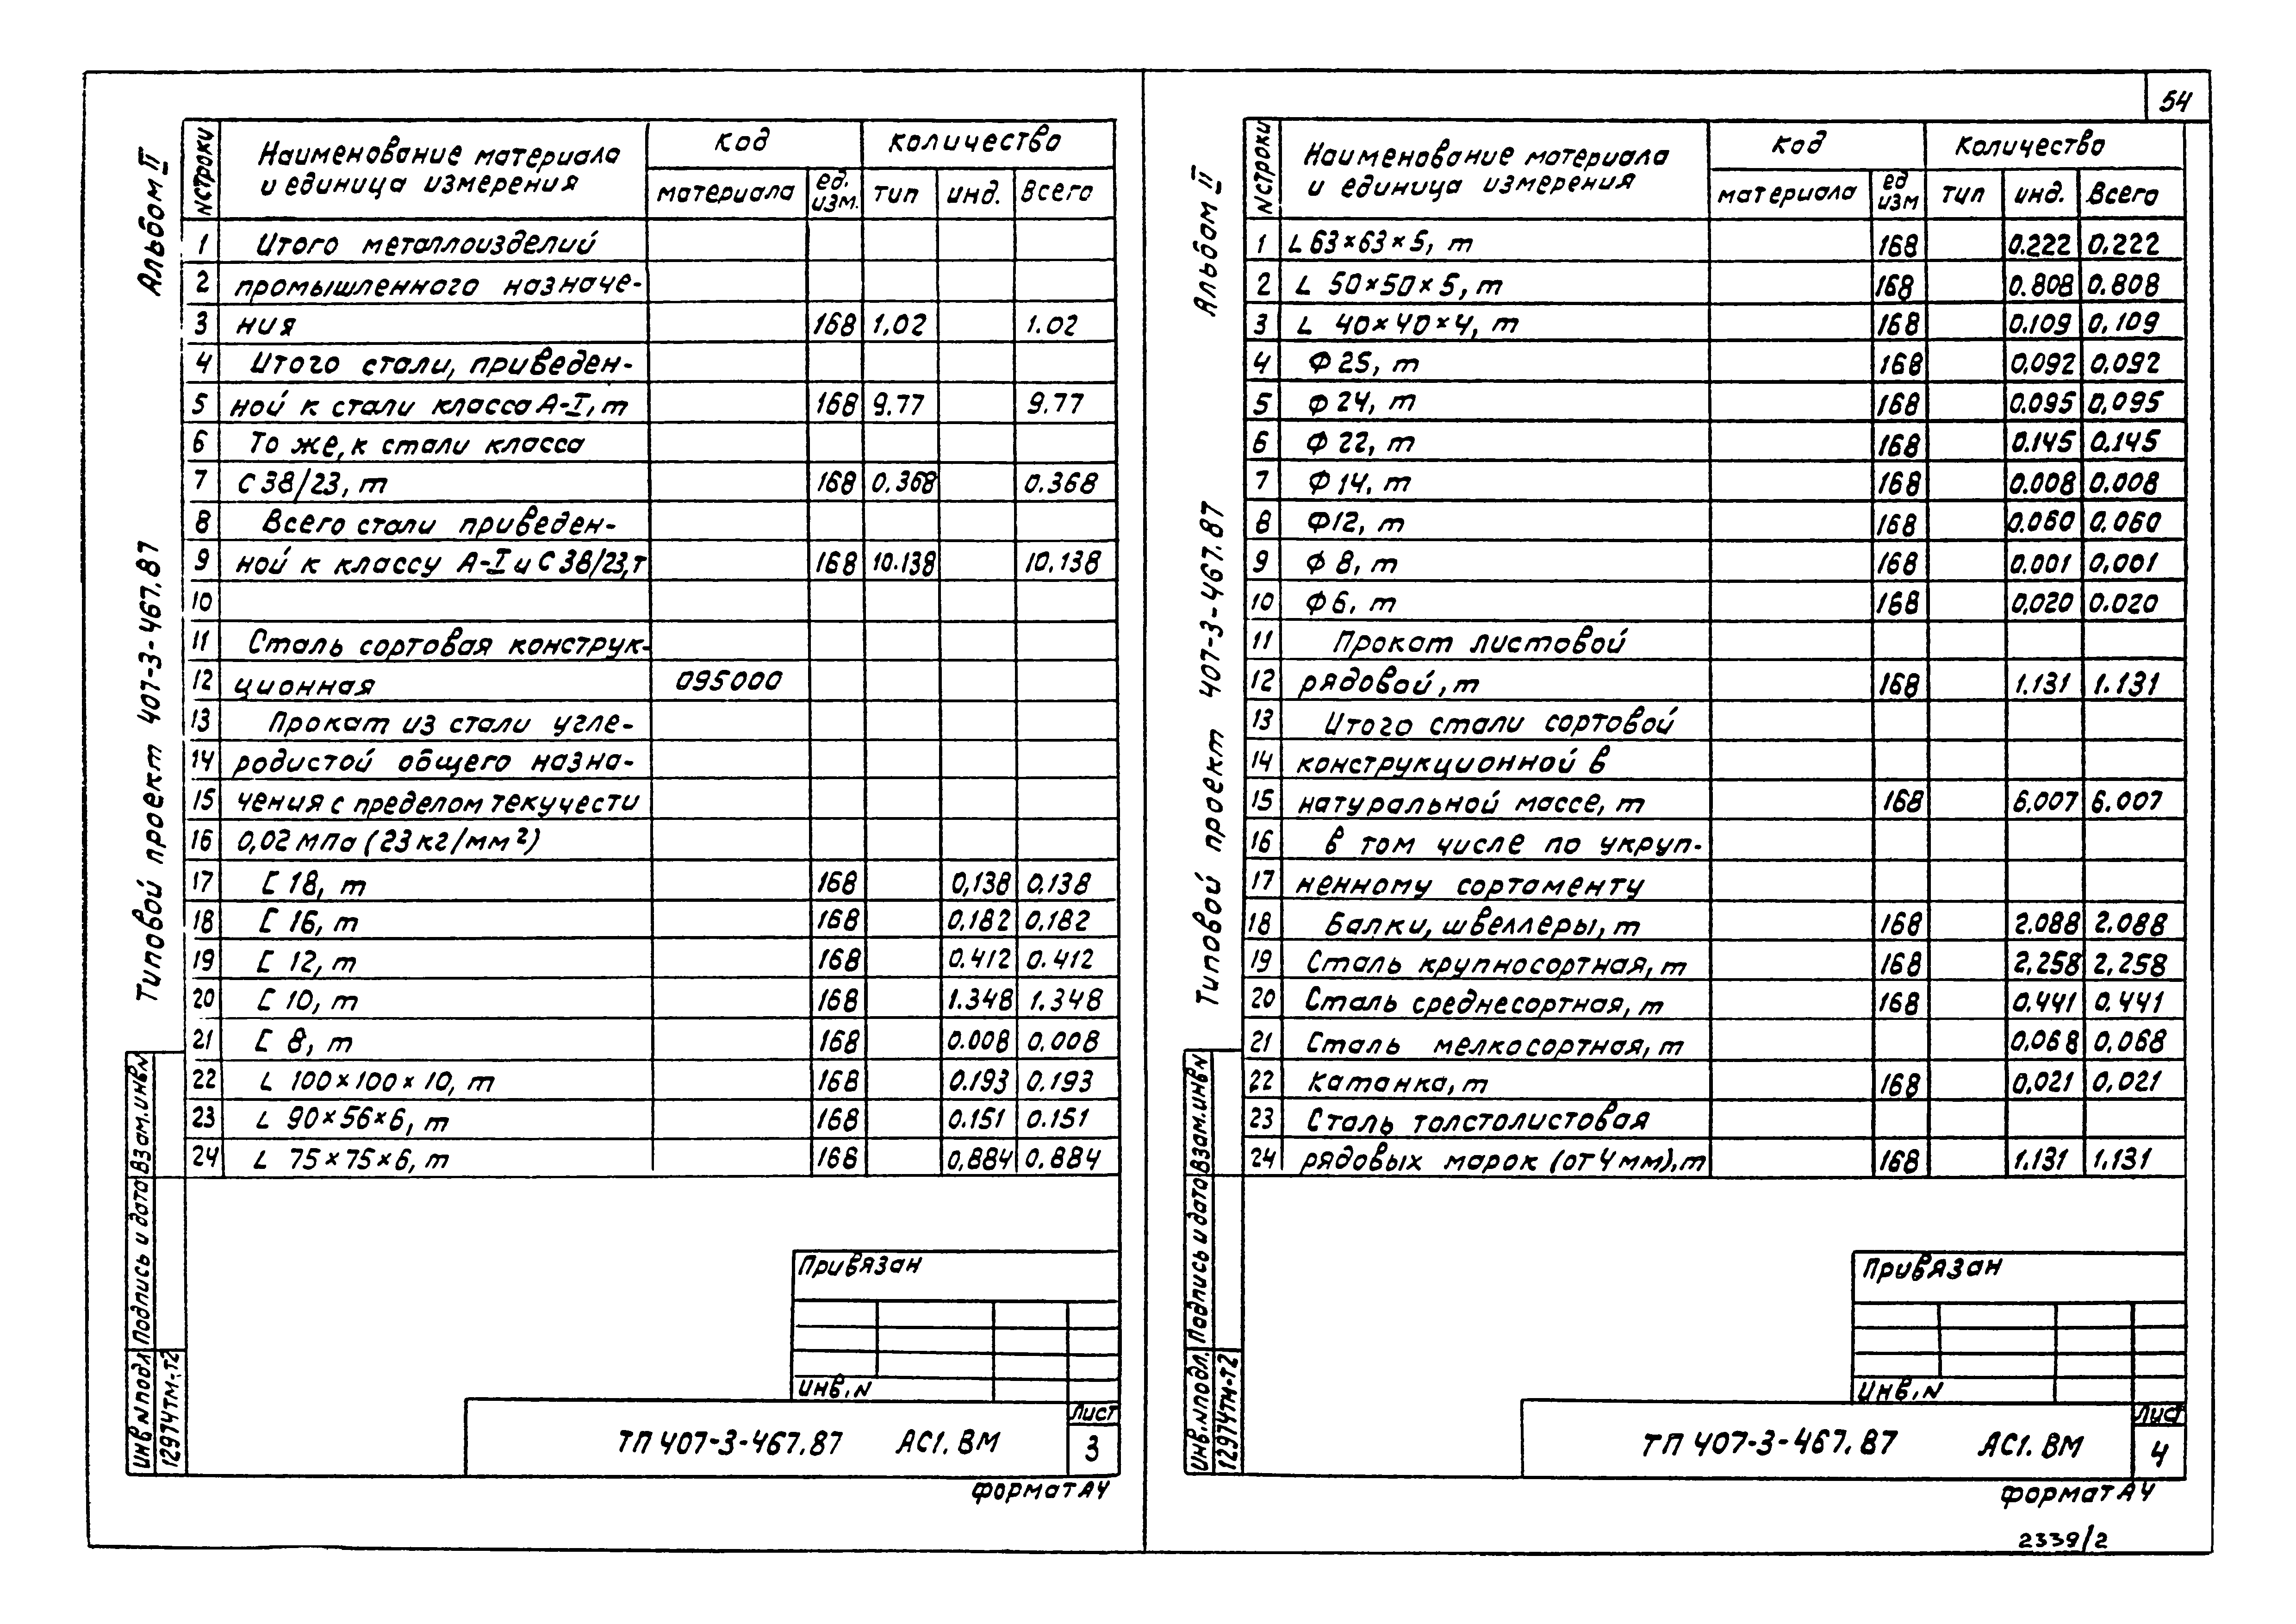 54
Альбом II
Типовой проект 407-3-467.87
N строки Наименование материала и единица измерения код количество
материала ед. изм. тип инд. Всего
1 Итого металлоизделий
2 промышленного назначе-
3 ния 168 1,02 1.02
4 Итого стали, приведен-
5 ной к стали класса А-I, т 168 9.77 9.77
6 То же, к стали класса
7 С 38/23, т 168 0.368 0.368
8 Всего стали приведен-
9 ной к классу А-I и С 38/23, т 168 10.138 10.138
10
11 Сталь сортовая конструк-
12 ционная 095000
13 Прокат из стали угле-
14 родистой общего назна-
15 чения с пределом текучести
16 0,02 мПа (23 кг/мм²)
17 [ 18, т 168 0,138 0,138
18 [ 16, т 168 0,182 0,182
19 [ 12, т 168 0.412 0.412
20 [ 10, т 168 1.348 1.348
21 [ 8, т 168 0.008 0.008
22 L 100×100×10, т 168 0.193 0.193
23 L 90×56×6, т 168 0.151 0.151
24 L 75×75×6, т 168 0,884 0.884
Взам.инв.N
Подпись и дата
Инв.N подл.
12974тм-т2
Привязан
Инв.N
ТП 407-3-467.87 АС1.ВМ
Лист
3
формат А4
Альбом II
Типовой проект 407-3-467.87
N строки Наименование материала и единица измерения код количество
материала ед изм тип инд. Всего
1 L 63×63×5, т 168 0.222 0.222
2 L 50×50×5, т 168 0.808 0.808
3 L 40×40×4, т 168 0.109 0,109
4 Ф 25, т 168 0,092 0,092
5 Ф 24, т 168 0,095 0,095
6 Ф 22, т 168 0.145 0.145
7 Ф 14, т 168 0.008 0.008
8 Ф12, т 168 0.060 0,060
9 Ф 8, т 168 0.001 0,001
10 Ф 6, т 168 0,020 0.020
11 Прокат листовой
12 рядовой, т 168 1.131 1.131
13 Итого стали сортовой
14 конструкционной в
15 натуральной массе, т 168 6,007 6.007
16 в том числе по укруп-
17 ненному сортаменту
18 Балки, швеллеры, т 168 2,088 2.088
19 Сталь крупносортная, т 168 2,258 2,258
20 Сталь среднесортная, т 168 0,441 0,441
21 Сталь мелкосортная, т 0,068 0,068
22 Катанка, т 168 0,021 0,021
23 Сталь толстолистовая
24 рядовых марок (от 4 мм), т 168 1.131 1,131
Взам.инв.N
Подпись и дата
Инв.N подл.
12974тм-т2
Привязан
Инв.N
ТП 407-3-467.87 АС1.ВМ
Лист
4
формат А4
2339/2